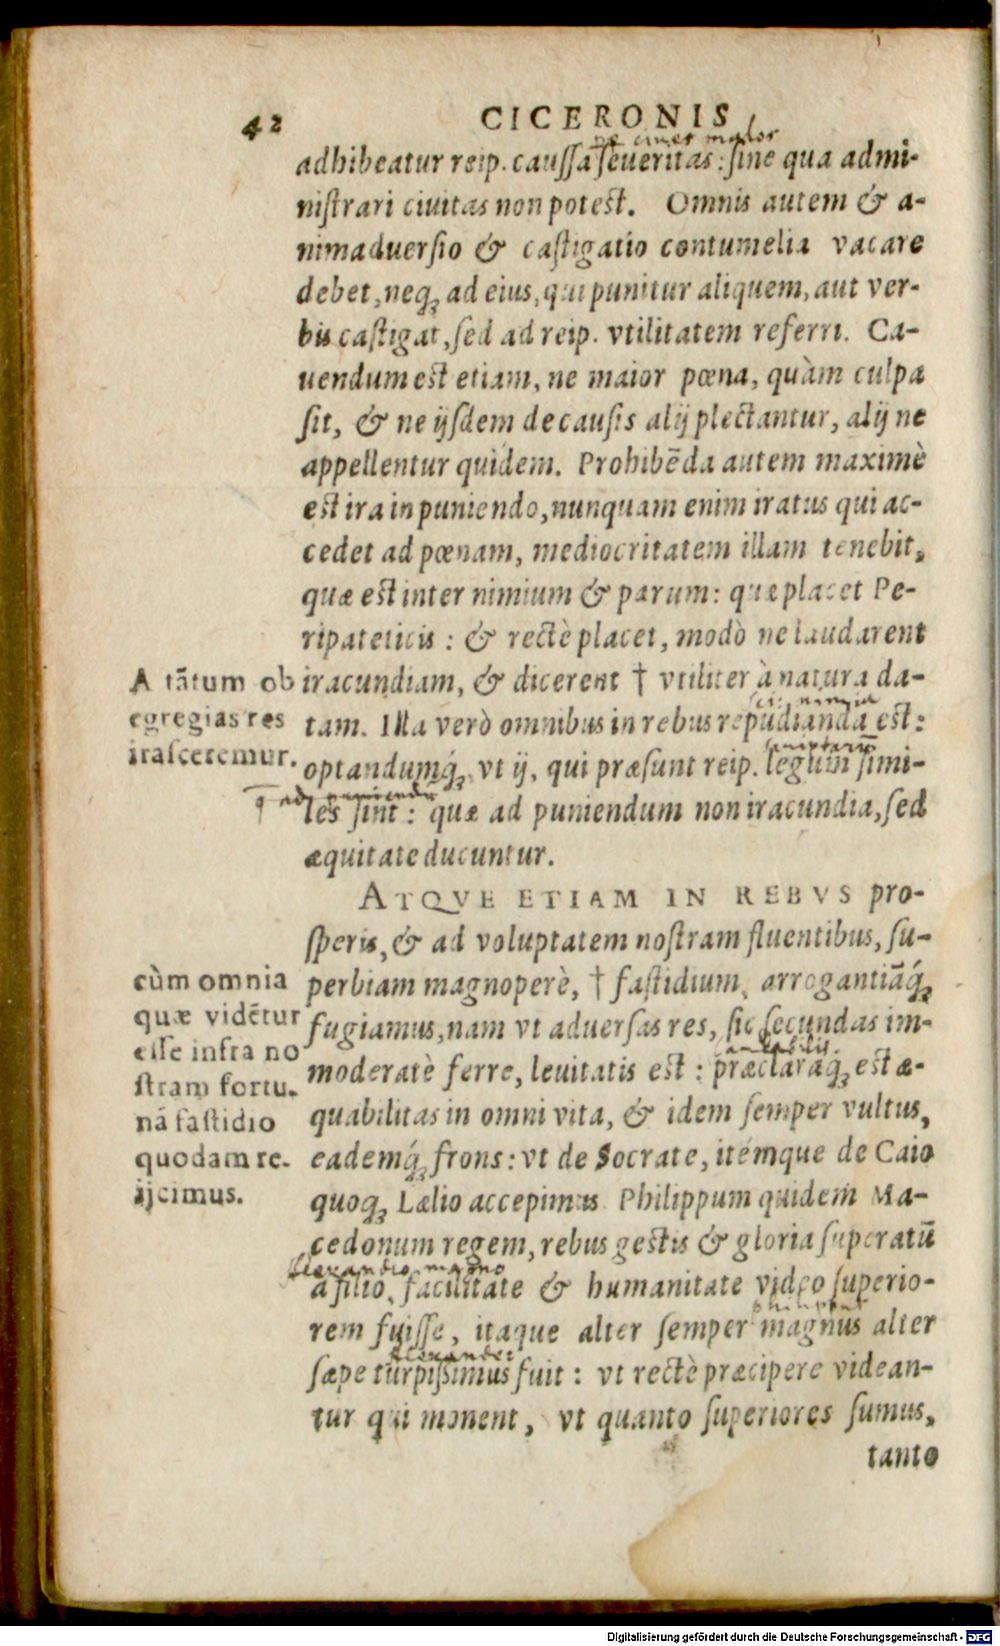 42
CICERONIS
adhibeatur reip. caussa seueritas: sine qua admi-
nistrari ciuitas non potest. Omnis autem & a-
nimaduersio & castigatio contumelia vacare
debet, neq; ad eius, qui punitur aliquem, aut ver-
bis castigat, sed ad reip. vtilitatem referri. Ca-
uendum est etiam, ne maior pœna, quàm culpa
sit, & ne ijsdem de causis alij plectantur, alij ne
appellentur quidem. Prohibēda autem maximè
est ira in puniendo, nunquam enim iratus qui ac-
cedet ad pœnam, mediocritatem illam tenebit,
quæ est inter nimium & parum: quæ placet Pe-
ripateticis: & rectè placet, modò ne laudarent
iracundiam, & dicerent † vtiliter à natura da-
tam. Illa verò omnibus in rebus repudianda est:
optandumq́; vt ij, qui præsunt reip. legum simi-
les sint: quæ ad puniendum non iracundia, sed
æquitate ducuntur.
A tātum ob
egregias res
irasceremur.
ATQVE ETIAM IN REBVS pro-
speris, & ad voluptatem nostram fluentibus, su-
perbiam magnoperè, † fastidium, arrogantiāq́;
fugiamus, nam vt aduersas res, sic secundas im-
moderatè ferre, leuitatis est: præclaraq; est æ-
quabilitas in omni vita, & idem semper vultus,
eademq́; frons: vt de Socrate, itémque de Caio
quoq; Lælio accepimus Philippum quidem Ma-
cedonum regem, rebus gestis & gloria superatū
Alexandro magno
a filio, facilitate & humanitate video superio-
rem fuisse, itaque alter semper magnus alter
Alexander
sæpe turpissimus fuit: vt rectè præcipere videan-
tur qui monent, vt quanto superiores sumus,
tanto
cùm omnia
quæ vidētur
esse infra no
stram fortu-
nā fastidio
quodam re-
ijcimus.
Digitalisierung gefördert durch die Deutsche Forschungsgemeinschaft - DFG